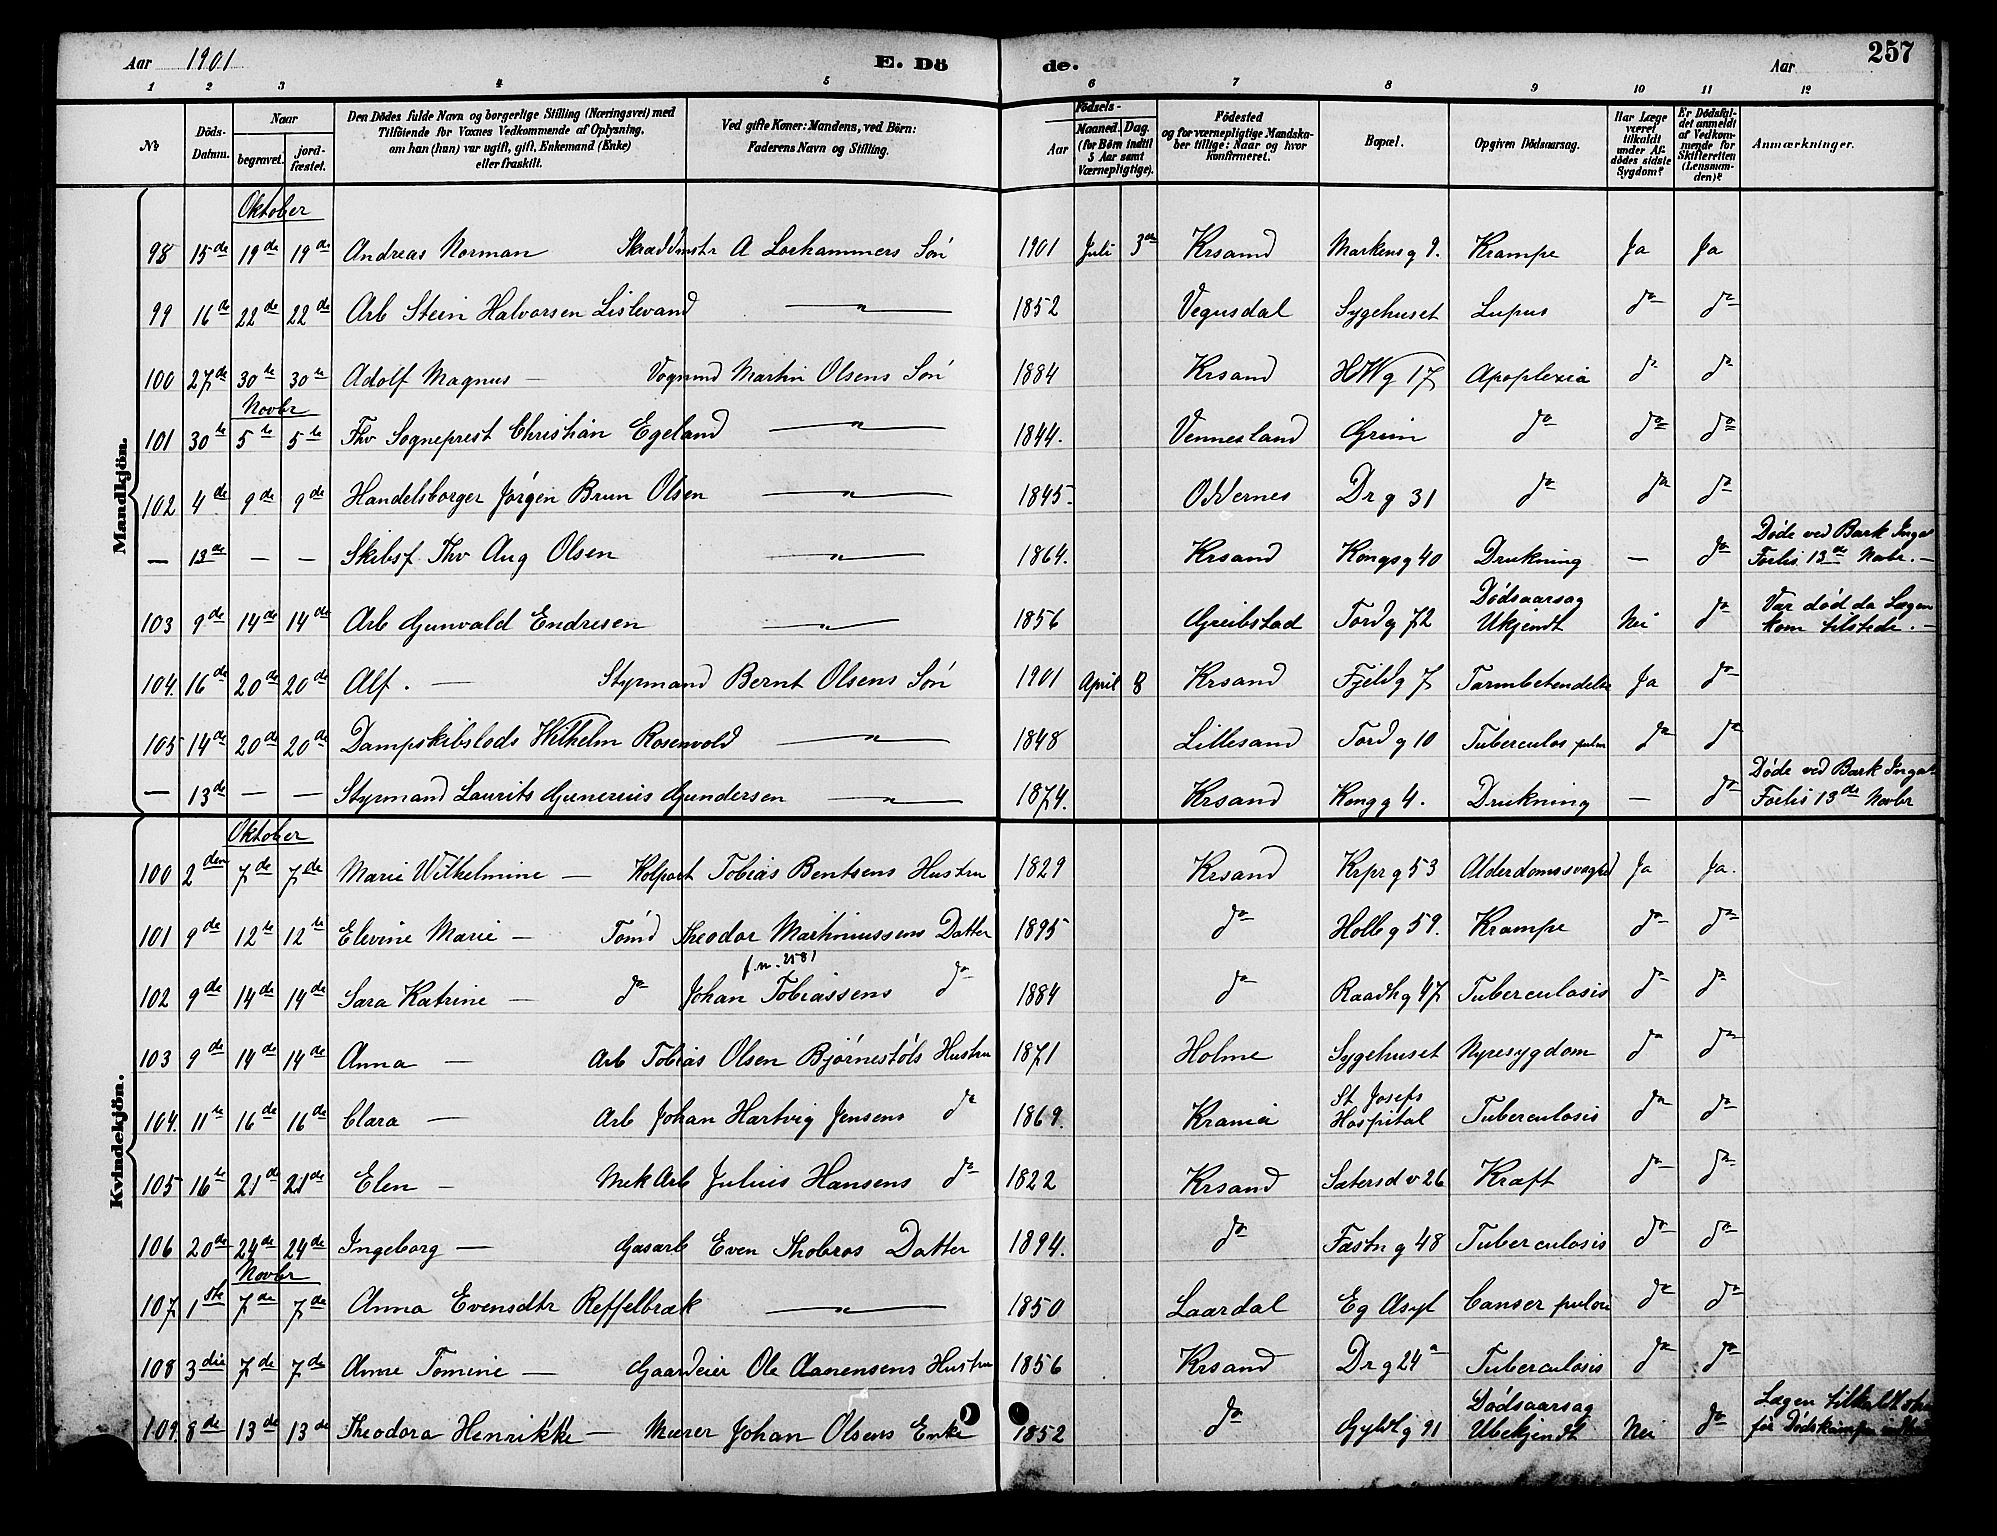 Aar 1901 E. Dö de. Aar 257
1 2 3 4 5 6 7 8 9 10 11 12
No
Döds-Datum.
Naar
begravet.
jord-fæstet.
Den Dödes fulde Navn og borgerlige Stilling (Næringsvei) med
Tilföiende for Voxnes Vedkommende af Oplysning,
om han (hun) var ugift, gift, Enkemand (Enke)
eller fraskilt.
Ved gifte Koner: Mandens, ved Börn:
Faderens Navn og Stilling.
Födsels-
Aar
Maaned. Dag.
(for Börn indtil
5 Aar samt
Værnepligtige).
Födested
og for værnepligtige Mandska-
ber tillige: Naar og hvor
konfirmeret.
Bopæl.
Opgiven Dödsaarsag.
Har Læge
været
tilkaldt
under Af-
dödes sidste
Sygdom?
Er Dödsfal-
det anmeldt
af Vedkom-
mende for
Skifteretten
(Lensman-
den)?
Anmærkninger.
Mandkjön.
Oktober
98 15de 19de 19de Andreas Norman Skræddmstr A Lorhammers Søn 1901 Juli 3die Krsand Markensg 9. Krampe Ja Ja
99 16de 22de 22de Arb Stein Halvorsen Lislevand — " — 1852 Vegusdal Sygehuset Lupus do do
100 27de 30te 30te Adolf Magnus — Vognmd Martin Olsens Søn 1884 Krsand HWg 17 Apoplexia do do
Novbr
101 30te 5te 5te Fhv Sogneprest Christian Egeland — " — 1844. Vennesland Grim do do do
102 4de 9de 9de Handelsborger Jørgen Brun Olsen — " — 1845. Oddernes Drg 31 do do do
— 13de — — Skibsf. Fhv Aug Olsen — " — 1864. Krsand Kongsg 40 Drukning — do Døde ved Bark Inga's
Forlis 13de Novbr. —
103 9de 14de 14de Arb Gunvald Endresen — " — 1856 Greibstad Tordg 72 Dødsaarsag
Ukjendt Nei do Var død da Lægen
kom tilstede. —
104. 16de 20de 20de Alf. — Styrmand Bernt Olsens Søn 1901 April 8 Krsand Fjeldg 7 Tarmbetendelse Ja do
105 14de 20de 20de Dampskibslods Wilhelm Rosenvold — " — 1848 Lillesand Tordg 10 Tuberculos pulm do do
— 13de — — Styrmand Laurits Gunerius Gundersen — " — 1874. Krsand Kongg 4. Drukning — do Døde ved Bark Inga's
Forlis 13de Novbr
Kvindekjön.
Oktober
100 2den 7de 7de Marie Wilhelmine — Kolport Tobias Bentsens Hustru 1829 Krsand Krprg 53 Alderdomssvaghed Ja Ja.
101 9de 12te 12te Elevine Marie — Tømd Theodor Martiniussens Datter 1895 do Holbg 59. Krampe do do
f. n. 258
102 9de 14de 14de Sara Katrine — do Johan Tobiassens do 1884 do Raadhg 47 Tuberculosis do do
103 9de 14de 14de Anna — Arb Tobias Olsen Bjørnestøls Hustru 1871 Holme Sygehuset Nyresygdom do do
104. 11te 16de 16de Clara — Arb Johan Hartvig Jensens do 1869. Krania St Josefs
Hospital Tuberculosis do do
105 16te 21de 21de Elen — Mek Arb Julius Hansens do 1822 Krsand Sætersd v 26 Kræft do do
106 20de 24de 24de Ingeborg — Gasarb Even Skobros Datter 1894. do Fæstng 48 Tuberculosis do do
Novbr
107. 1ste 7de 7de Anna Evensdtr Reffelbræk — " — 1850 Laardal Eg Asyl Canser do do
108 3die 7de 7de Anne Tomine — Gaardeier Ole Aanensens Hustru 1856 Krsand Drg 24a Tuberculosis do do
109. 8de 13de 13de Theodora Henrikke — Murer Johan Olsens Enke 1852 do Gyldlg 91 Dødsaarsag
Ubekjendt Nei do Lægen tilkaldt
før Dødskampen